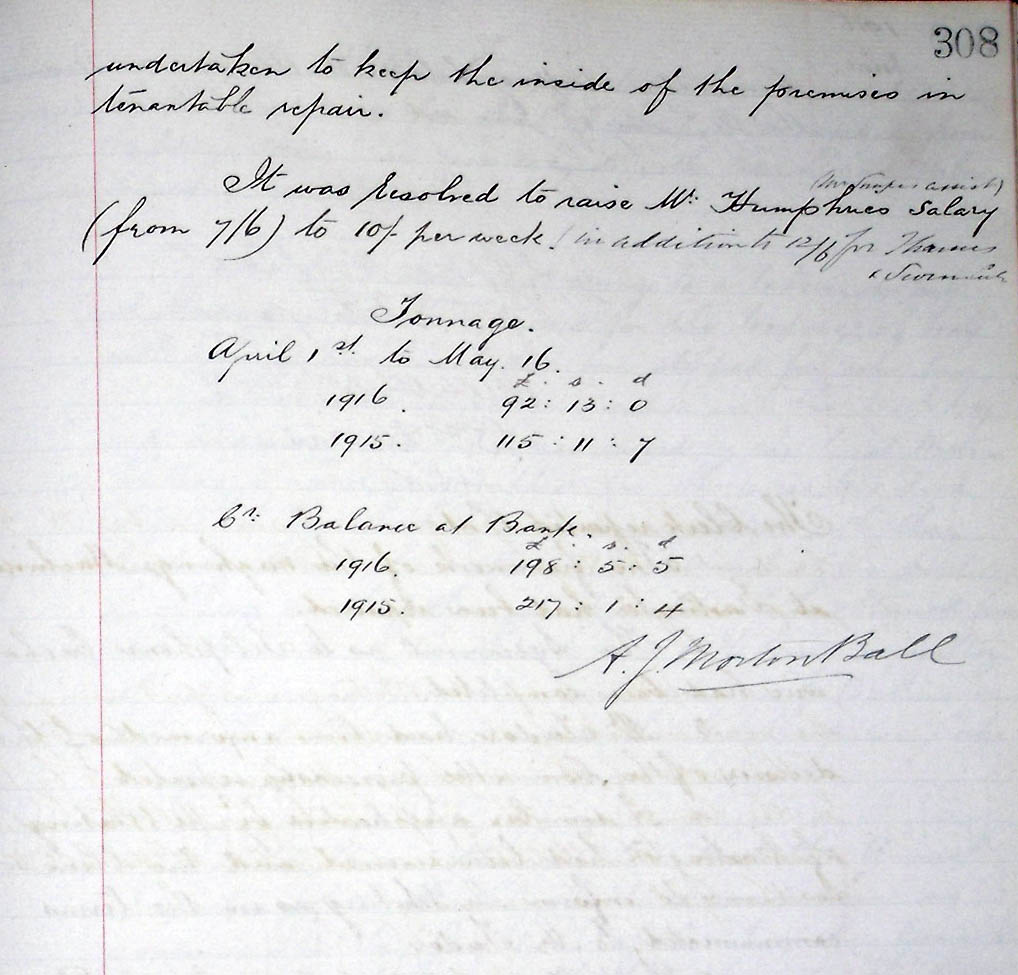 308
undertaken to keep the inside of the premises in
tenantable repair.
It was resolved to raise Mr. Humphries Salary
(Mr Snapes assist)
(from 7/6) to 10/- per week. in addition to 12/6 for Thames
& Severn
Tonnage.
April 1st. to May. 16.
£ . s . d
1916. 92 : 13 : 0
1915. 115 : 11 : 7
Cr: Balance at Bank.
£ . s . d
1916. 198 : 5 : 5
1915. 217 : 1 : 4
A. J. Morton Ball